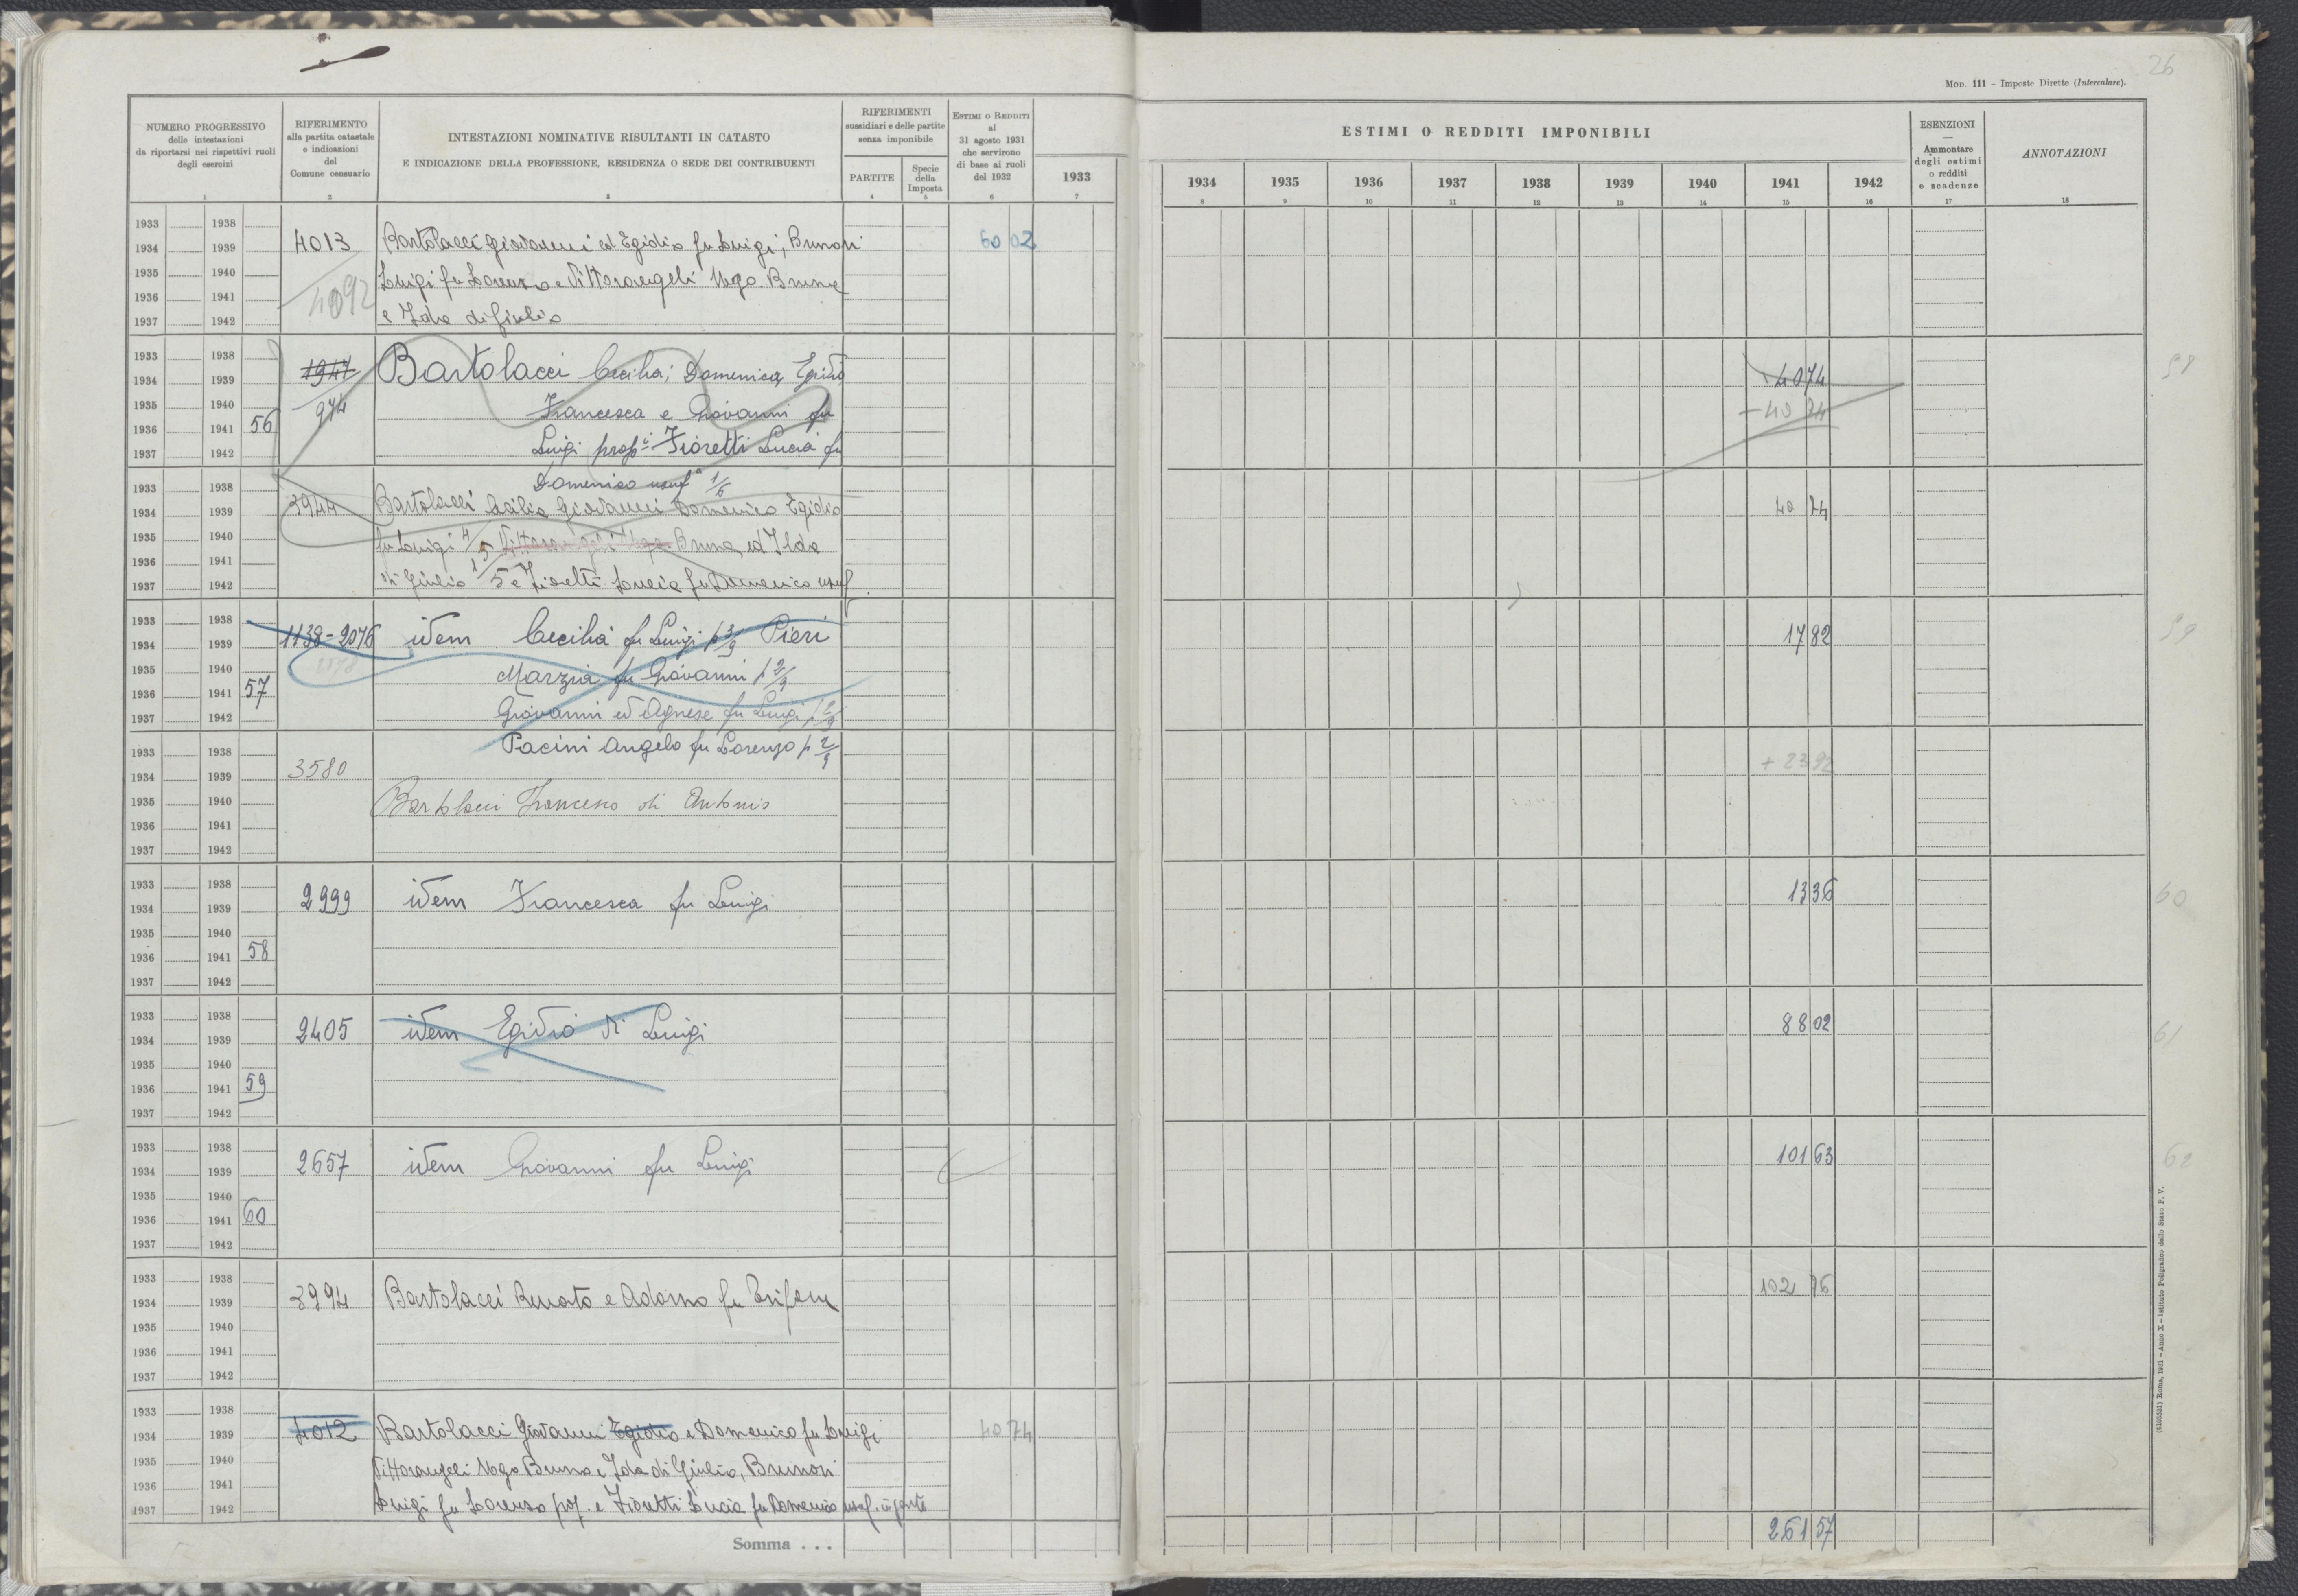 26
Mod. 111 - Imposte Dirette (Intercalare).
NUMERO PROGRESSIVO
delle intestazioni
da riportarsi nei rispettivi ruoli
degli esercizi
1
RIFERIMENTO
alla partita catastale
e indicazioni
del
Comune censuario
2
INTESTAZIONI NOMINATIVE RISULTANTI IN CATASTO
E INDICAZIONE DELLA PROFESSIONE, RESIDENZA O SEDE DEI CONTRIBUENTI
3
RIFERIMENTI
sussidiari e delle partite
senza imponibile
PARTITE
4
Specie
della
Imposta
5
ESTIMI O REDDITI
al
31 agosto 1931
che servirono
di base ai ruoli
del 1932
6
1933
7
ESTIMI O REDDITI IMPONIBILI
1934 1935 1936 1937 1938 1939 1940 1941 1942
8 9 10 11 12 13 14 15 16
ESENZIONI
—
Ammontare
degli estimi
o redditi
e scadenze
17
ANNOTAZIONI
18
1933 1938
1934 1939 4013 Bartolacci Giovanni ed Egidio fu Luigi; Brunori 60 02
1935 1940 Luigi fu Lorenzo e Vittorangeli Ugo Bruna
1936 1941 4092
1937 1942 e Ida di Giulio
1933 1938 1947 Bartolacci Cecilia, Domenica, Egidio 40 74 58
1934 1939
1935 1940 974 Francesca e Giovanni fu - 40 74
1936 1941 56
1937 1942 Luigi propri Fioretti Lucia fu
1933 1938 Domenico usuf 1/6
1934 1939 3944 Bartolacci Cecilia Giovanni Domenico Egidio 40 74
1935 1940 fu Luigi 4/5 Vittorangeli Ugo Bruna ed Ilda
1936 1941
1937 1942 di Giulio 1/5 e Fioretti Lucia fu Domenico usuf
1933 1938
1934 1939 1138-2076 idem Cecilia fu Luigi p 3/9 Pieri 17 82 59
1935 1940 Marzia fu Giovanni p 2/9
1936 1941 57
1937 1942 Giovanni ed Agnese fu Luigi p 2/9
1933 1938 Pacini Angelo fu Lorenzo p 2/9
1934 1939 3580 + 23 92
1935 1940 Bartolacci Francesco di Antonio
1936 1941
1937 1942
1933 1938
1934 1939 2999 idem Francesca fu Luigi 13 36 60
1935 1940
1936 1941 58
1937 1942
1933 1938
1934 1939 2405 idem Egidio di Luigi 88 02 61
1935 1940
1936 1941 59
1937 1942
1933 1938
1934 1939 2657 idem Giovanni fu Luigi 101 63 62
1935 1940
1936 1941 60
1937 1942
1933 1938
1934 1939 3994 Bartolacci Renato e Adorno fu 102 76
1935 1940
1936 1941
1937 1942
1933 1938
1934 1939 4012 Bartolacci Giovanni Egidio e Domenico fu Luigi 40 74
1935 1940 Vittorangeli Ugo Bruna e Ida di Giulio, Brunori
1936 1941
1937 1942 Luigi fu Lorenzo prof. e Fioretti Lucia fu Domenico usuf. in parte
Somma . . . 261 57
(4102331) Roma, 1931 - Anno X - Istituto Poligrafico dello Stato P. V.